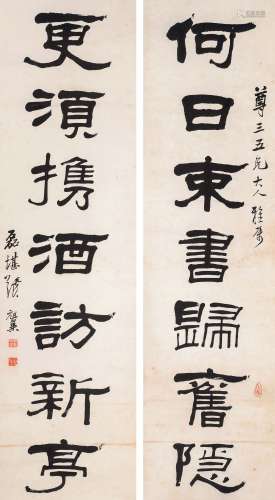 尊三五兄大人雅屬
何日束書歸舊隱
更須携酒訪新亭
磊堪